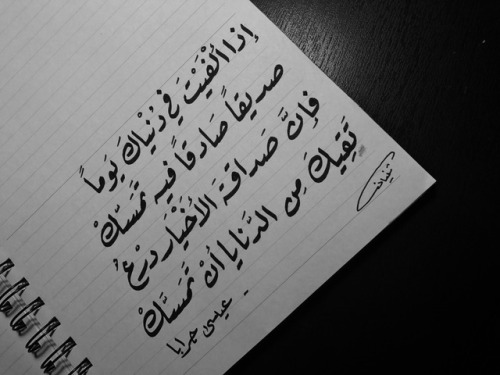 إذا ألْفَيْتَ في دُنْيَاكَ يَوماً
صديقاً صَادقاً فيهِ تمَسَّكْ
فإنَّ صَداقة الأخْيَار دِرْعٌ
تَقِيكَ مِن الدَّنايا أنْ تمَسَّكْ
- عيسى جرابا